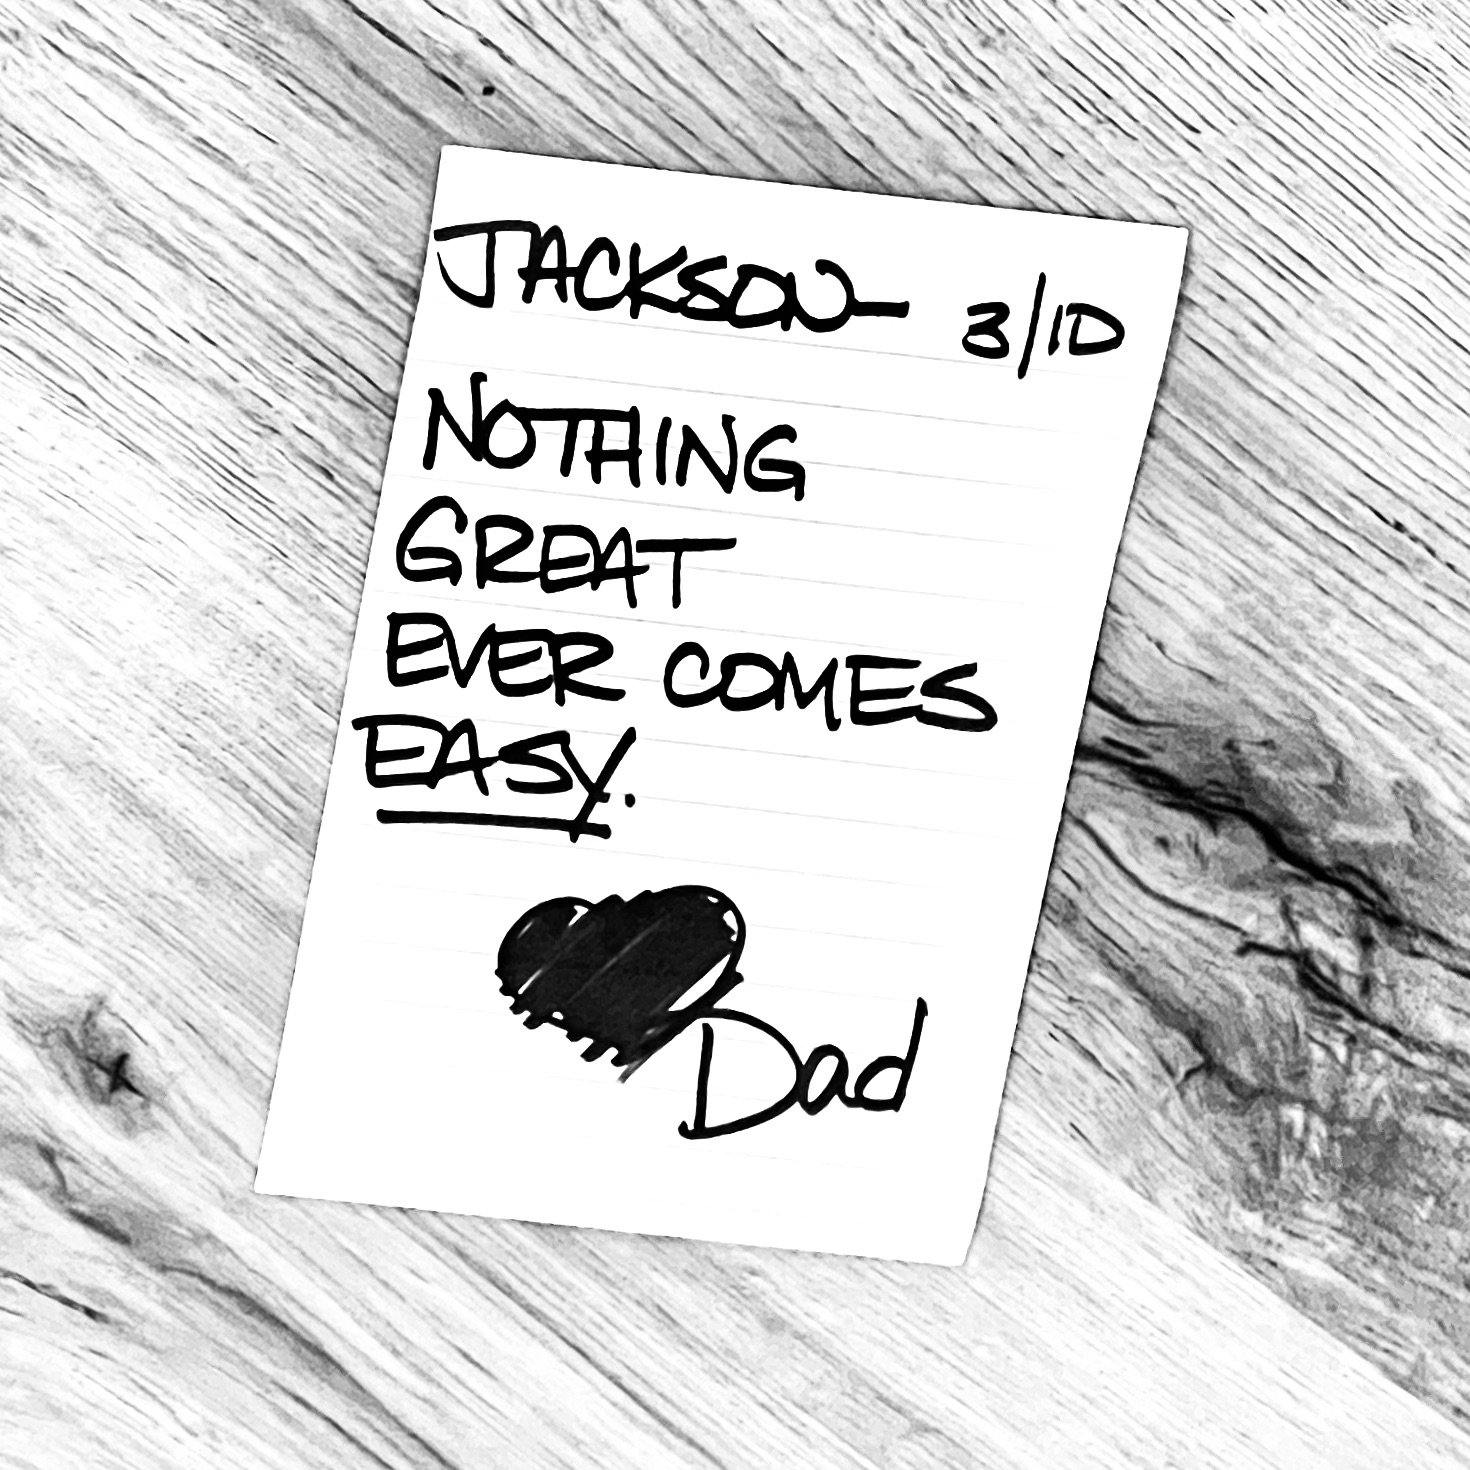 JACKSON— 3/10
NOTHING
GREAT
EVER COMES
EASY.
Dad